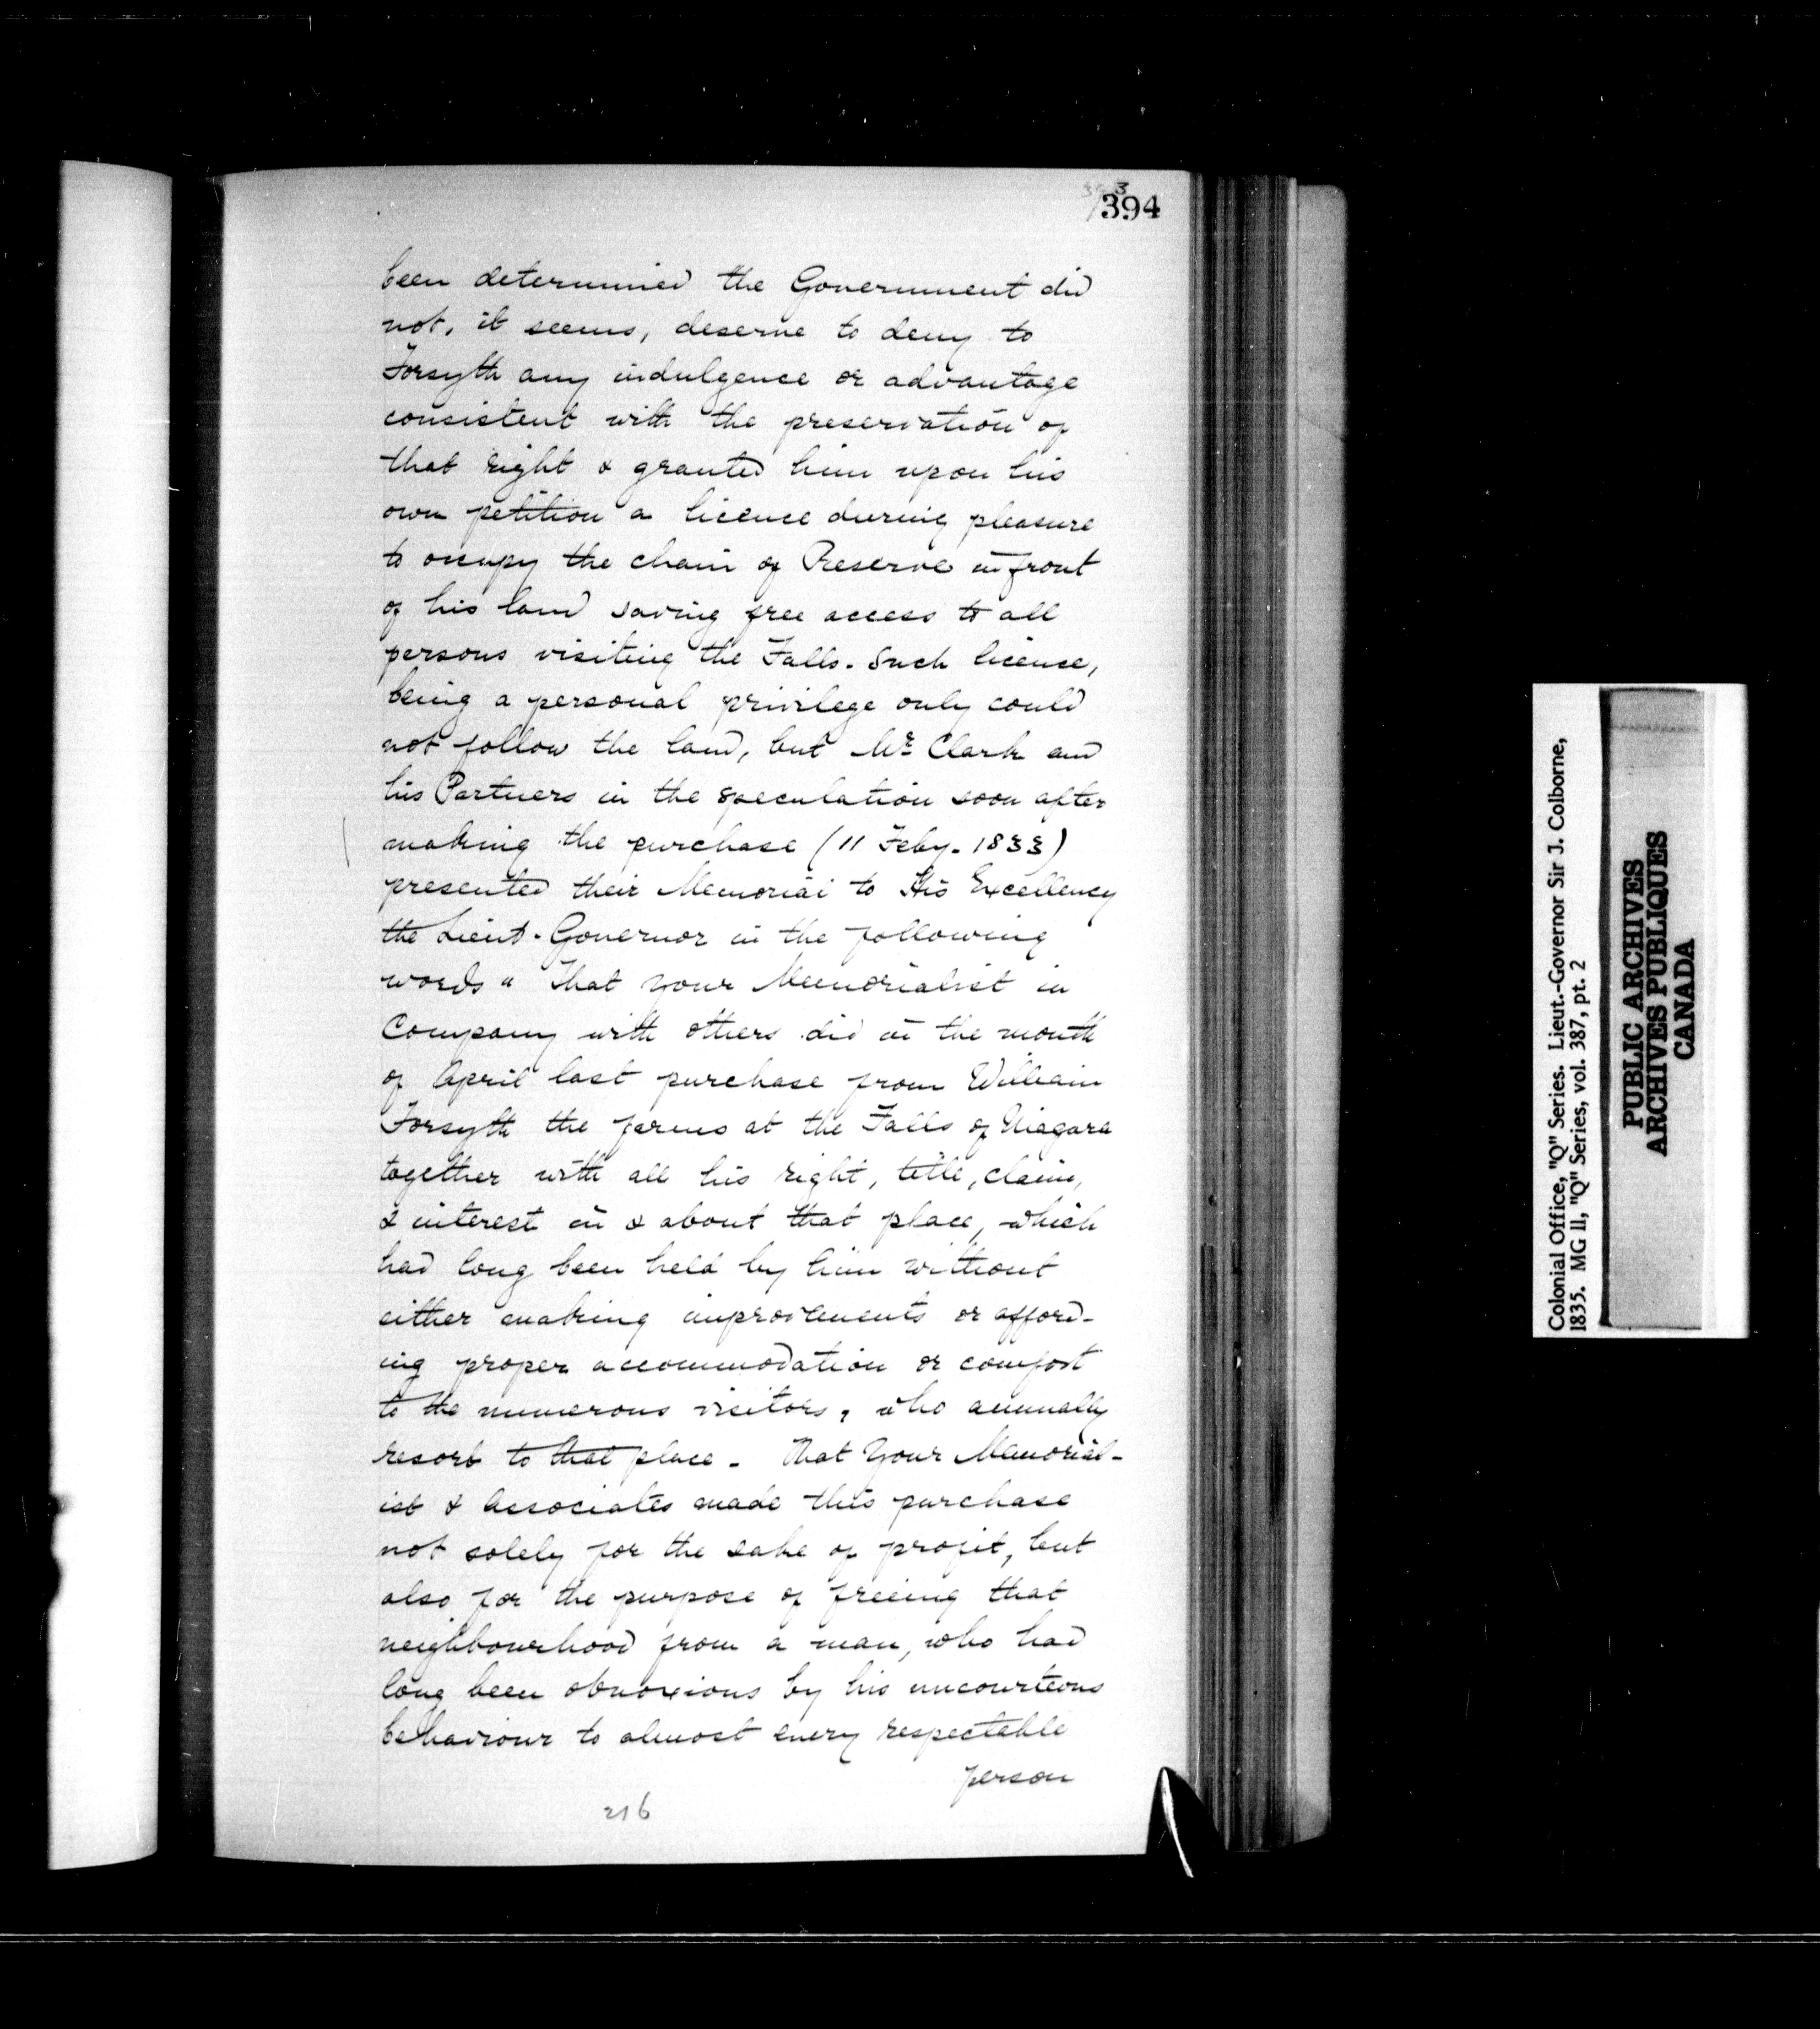 394
been determined the Government did
not, it seems, deserve to deny to
Forsyth any indulgence or advantage
consistent with the preservation of
that right & granted him upon his
own petition a licence during pleasure
to occupy the chain of Reserve in front
of his land saving free access to all
persons visiting the Falls. Such licence,
being a personal privilege only could
not follow the land, but Mr Clark and
his Partners in the speculation soon after
making the purchase (11 Feby. 1833)
presented their Memorial to His Excellency
the Lieut. Governor in the following
words " That your Memorialist in
Company with others did in the month
of April last purchase from William
Forsyth the farms at the Falls of Niagara
together with all his right, title, claim,
& interest in & about that place, which
had long been held by him without
either making improvements or afford-
ing proper accommodation or comfort
to the numerous visitors, who annually
resort to that place - That Your Memorial-
ist & Associates made this purchase
not solely for the sake of profit, but
also for the purpose of freeing that
neighbourhood from a man, who had
long been obnoxious by his uncourteous
behaviour to almost every respectable
person
216
Colonial Office, "Q" Series. Lieut.-Governor Sir J. Colborne,
1835. MG 11, "Q" Series, vol. 387, pt. 2
PUBLIC ARCHIVES
ARCHIVES PUBLIQUES
CANADA